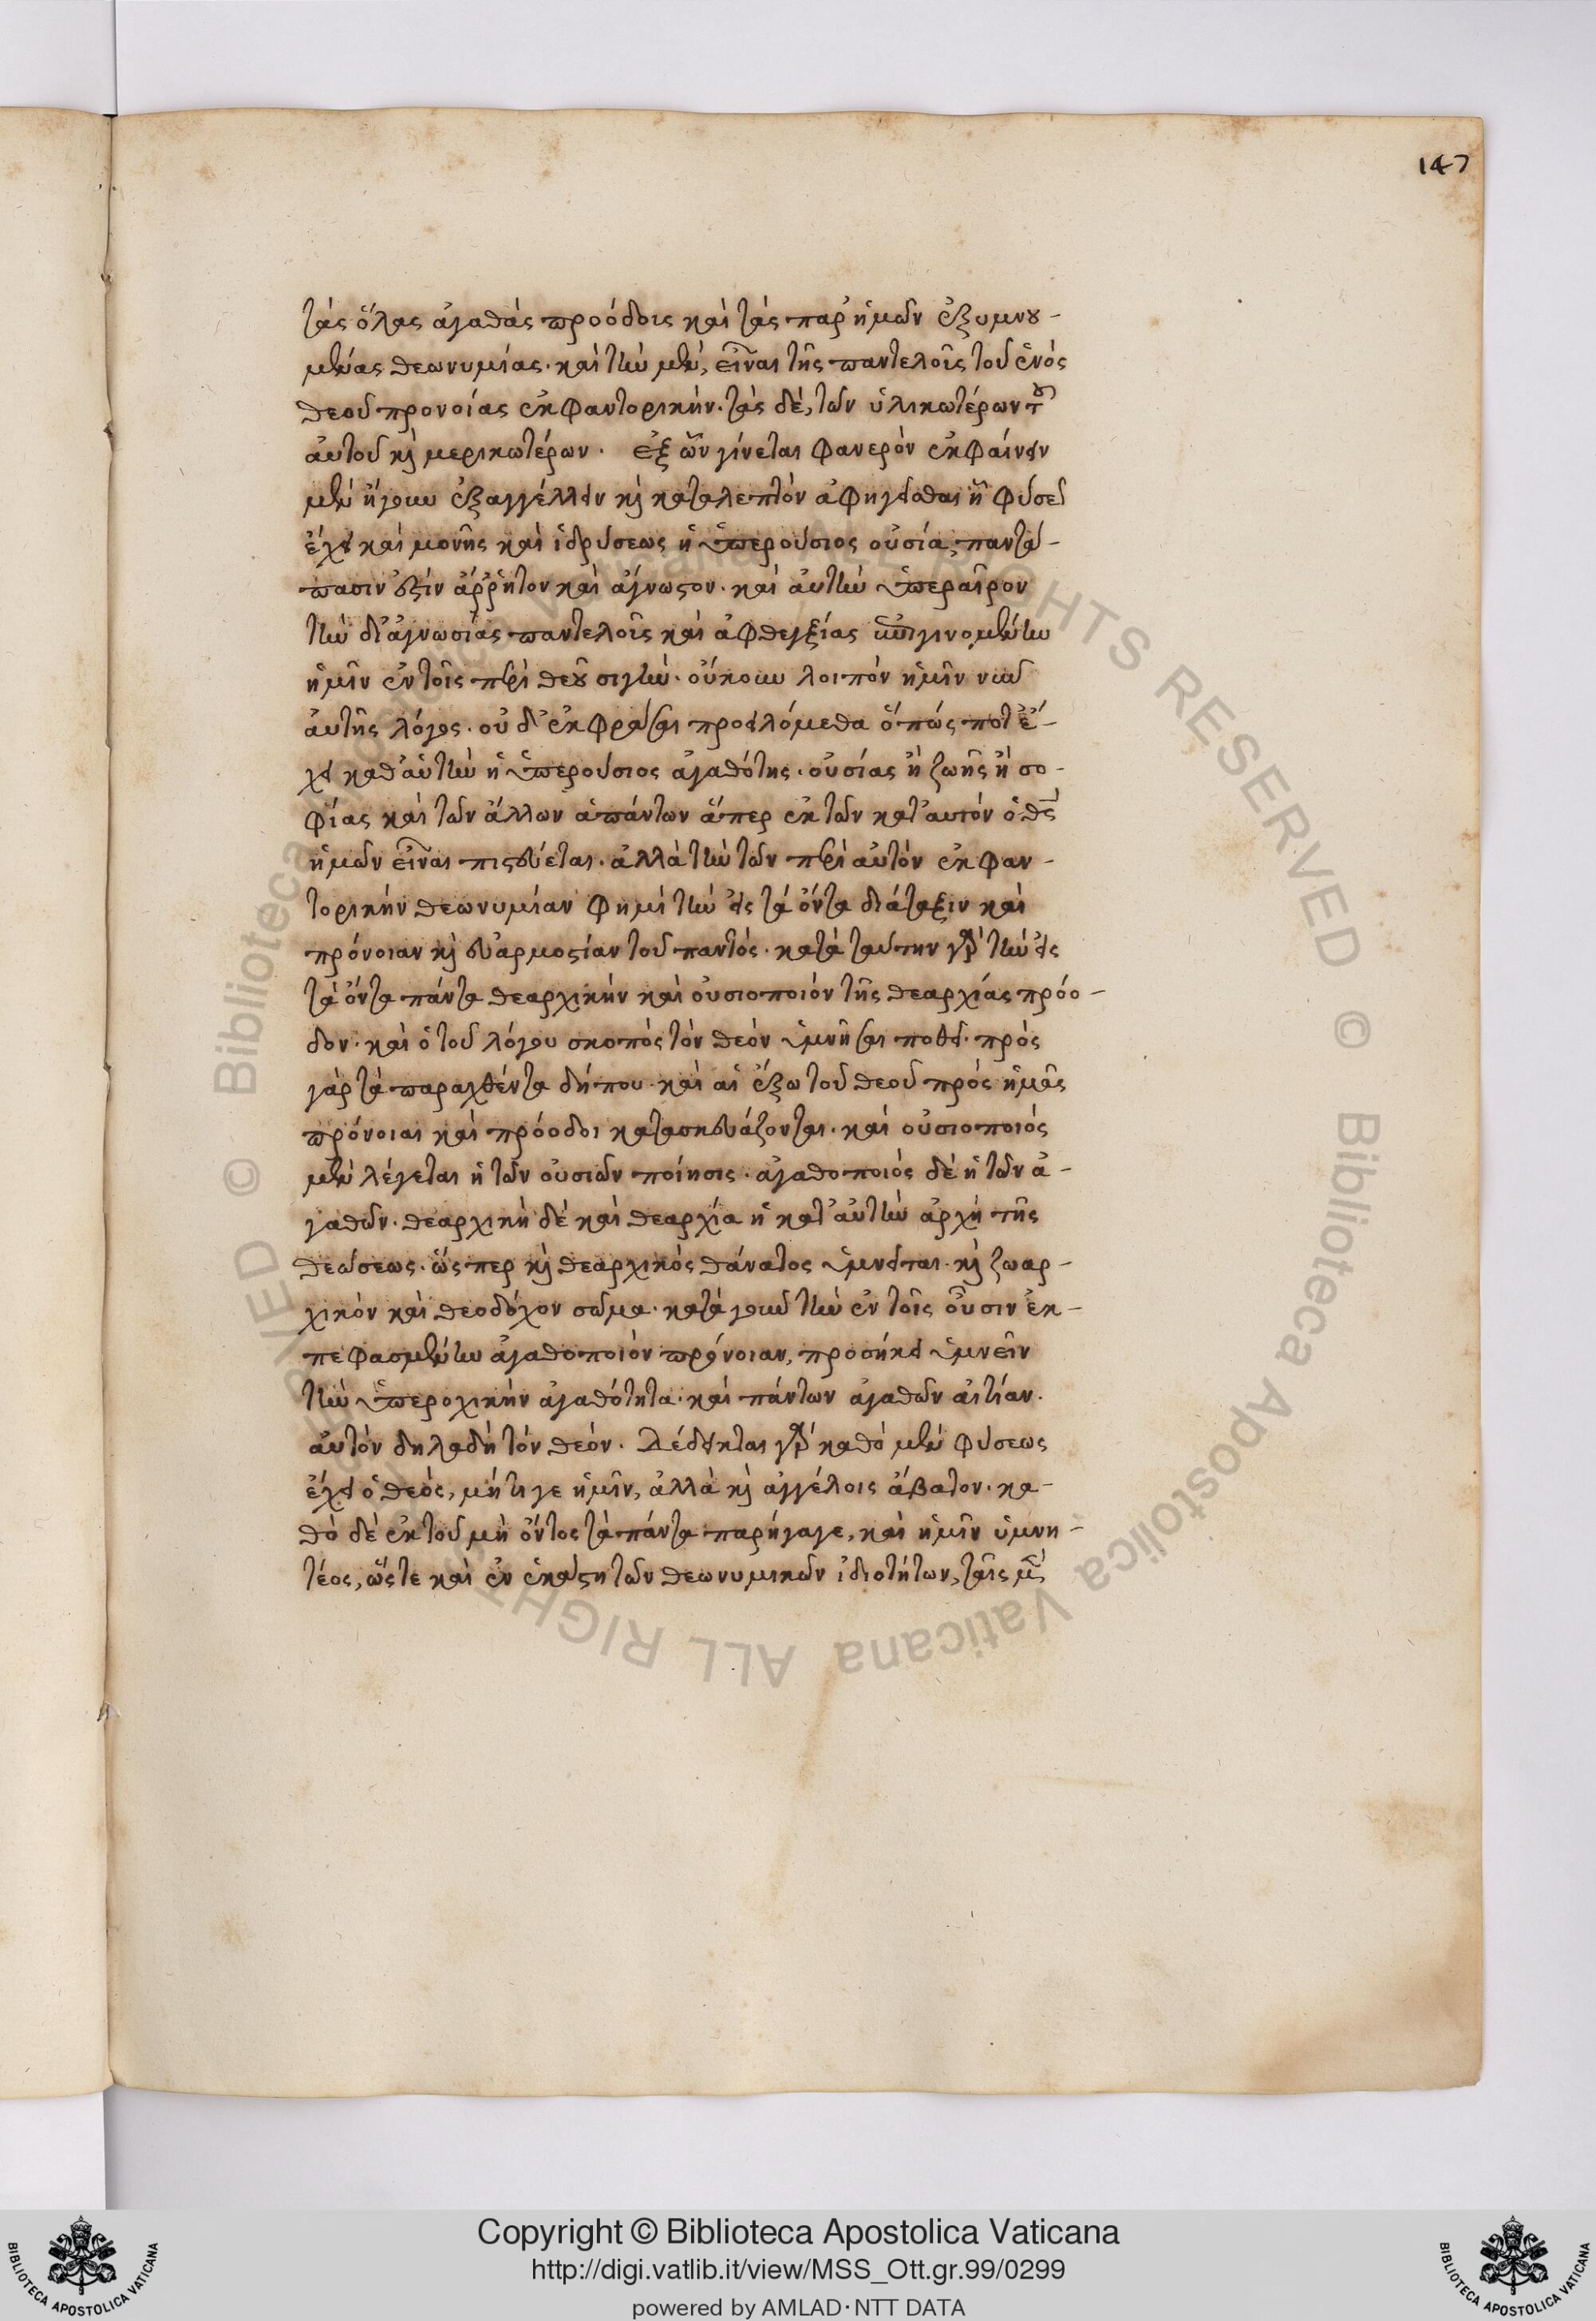 147
τὰς ὅλας ἀγαθὰς προόδοις καὶ τὰς παρ' ἡμῶν ἐξυμνου-
μένας θεωνυμίας· καὶ τὴν μὲν, εἶναι τῆς παντελοῖς τοῦ ἑνὸς
θεοῦ προνοίας ἐκφαντορικήν· τὰς δὲ, τῶν ὑλικωτέρων τοῦ
αὐτοῦ καὶ μερικωτέρων· Ἐξ ὧν γίνεται φανερὸν ἐκφαίνειν
μὲν ἤγουν ἐξαγγέλλειν καὶ καταλεπτὸν ἀφηγεῖσθαι ᾗ φύσει
ἔχει καὶ μονῆς καὶ ἱδρύσεως ἡ ὑπερούσιος οὐσία, παντά-
πασιν ἐστὶν ἄρρητον καὶ ἄγνωστον· καὶ αὐτὴν ὑπεραῖρον
τὴν δι' ἀγνωσίας παντελοῖς καὶ ἀφθεγξίας ἐπιγινομένην
ἡμῖν ἐν τοῖς περὶ θεοῦ σιγήν· οὔκουν λοιπὸν ἡμῖν νῦν
αὐτῆς λόγος· οὐ δ' ἐκφράσαι προειλόμεθα ὅπως ποτ' ἔ-
χει καθ' αὑτὴν ἡ ὑπερούσιος ἀγαθότης· οὐσίας ἢ ζωῆς ἢ σο-
φίας καὶ τῶν ἄλλων ἁπάντων ἅπερ ἐκ τῶν κατ' αυτὸν ὁ θς
ἡμῶν εἶναι πιστεύεται· ἀλλὰ τὴν τῶν περὶ αὐτὸν ἐκφαν-
τορικὴν θεωνυμίαν φημὶ τὴν εἰς τὰ ὄντα διάταξιν καὶ
πρόνοιαν καὶ εὐαρμοστίαν τοῦ παντός· κατὰ ταύτην γὰρ τὴν εἰς
τὰ ὄντα πάντα θεαρχικὴν καὶ οὐσιοποιὸν τῆς θεαρχίας πρόο-
δον· καὶ ὁ τοῦ λόγου σκοπὸς τὸν θεὸν ὑμνῆσαι ποθεῖ· πρὸς
γὰρ τὰ παραχθέντα δήπου· καὶ αἱ ἔξω τοῦ θεοῦ πρὸς ἡμᾶς
πρόνοιαι καὶ πρόοδοι κατασκευάζονται· καὶ οὐσιοποιὸς
μὲν λέγεται ἡ τῶν οὐσιῶν ποίησις· ἀγαθοποιὸς δὲ ἡ τῶν ἀ-
γαθῶν· θεαρχικὴ δὲ καὶ θεαρχία ἡ κατ' αὐτὴν ἀρχὴ τῆς
θεώσεως· ὥς περ καὶ θεαρχικὸς θάνατος ὑμνεῖται· καὶ ζωαρ-
χικὸν καὶ θεοδόχον σῶμα· κατὰ γοῦν τὴν ἐν τοῖς οὖσιν ἐκ-
πεφασμένην ἀγαθοποιὸν πρόνοιαν, προσήκει ὑμνεῖν
τὴν ὑπεροχικὴν ἀγαθότητα· καὶ πάντων ἀγαθῶν αἰτίαν·
αὐτὸν δηλαδὴ τὸν θεόν· Δέδεικται γὰρ καθὸ μὲν φύσεως
ἔχει ὁ θεός, μήτιγε ἡμῖν, ἀλλὰ καὶ ἀγγέλοις ἄβατον· κα-
θὸ δὲ ἐκ τοῦ μὴ ὄντος τὰ πάντα παρήγαγε, καὶ ἡμῖν ὑμνη-
τέος, ὥστε καὶ ἐν ἑκάστη τῶν θεωνυμικῶν ἰδιοτήτων, ταῖς μὲν
Copyright © Biblioteca Apostolica Vaticana
http://digi.vatlib.it/view/MSS_Ott.gr.99/0299
powered by AMLAD·NTT DATA